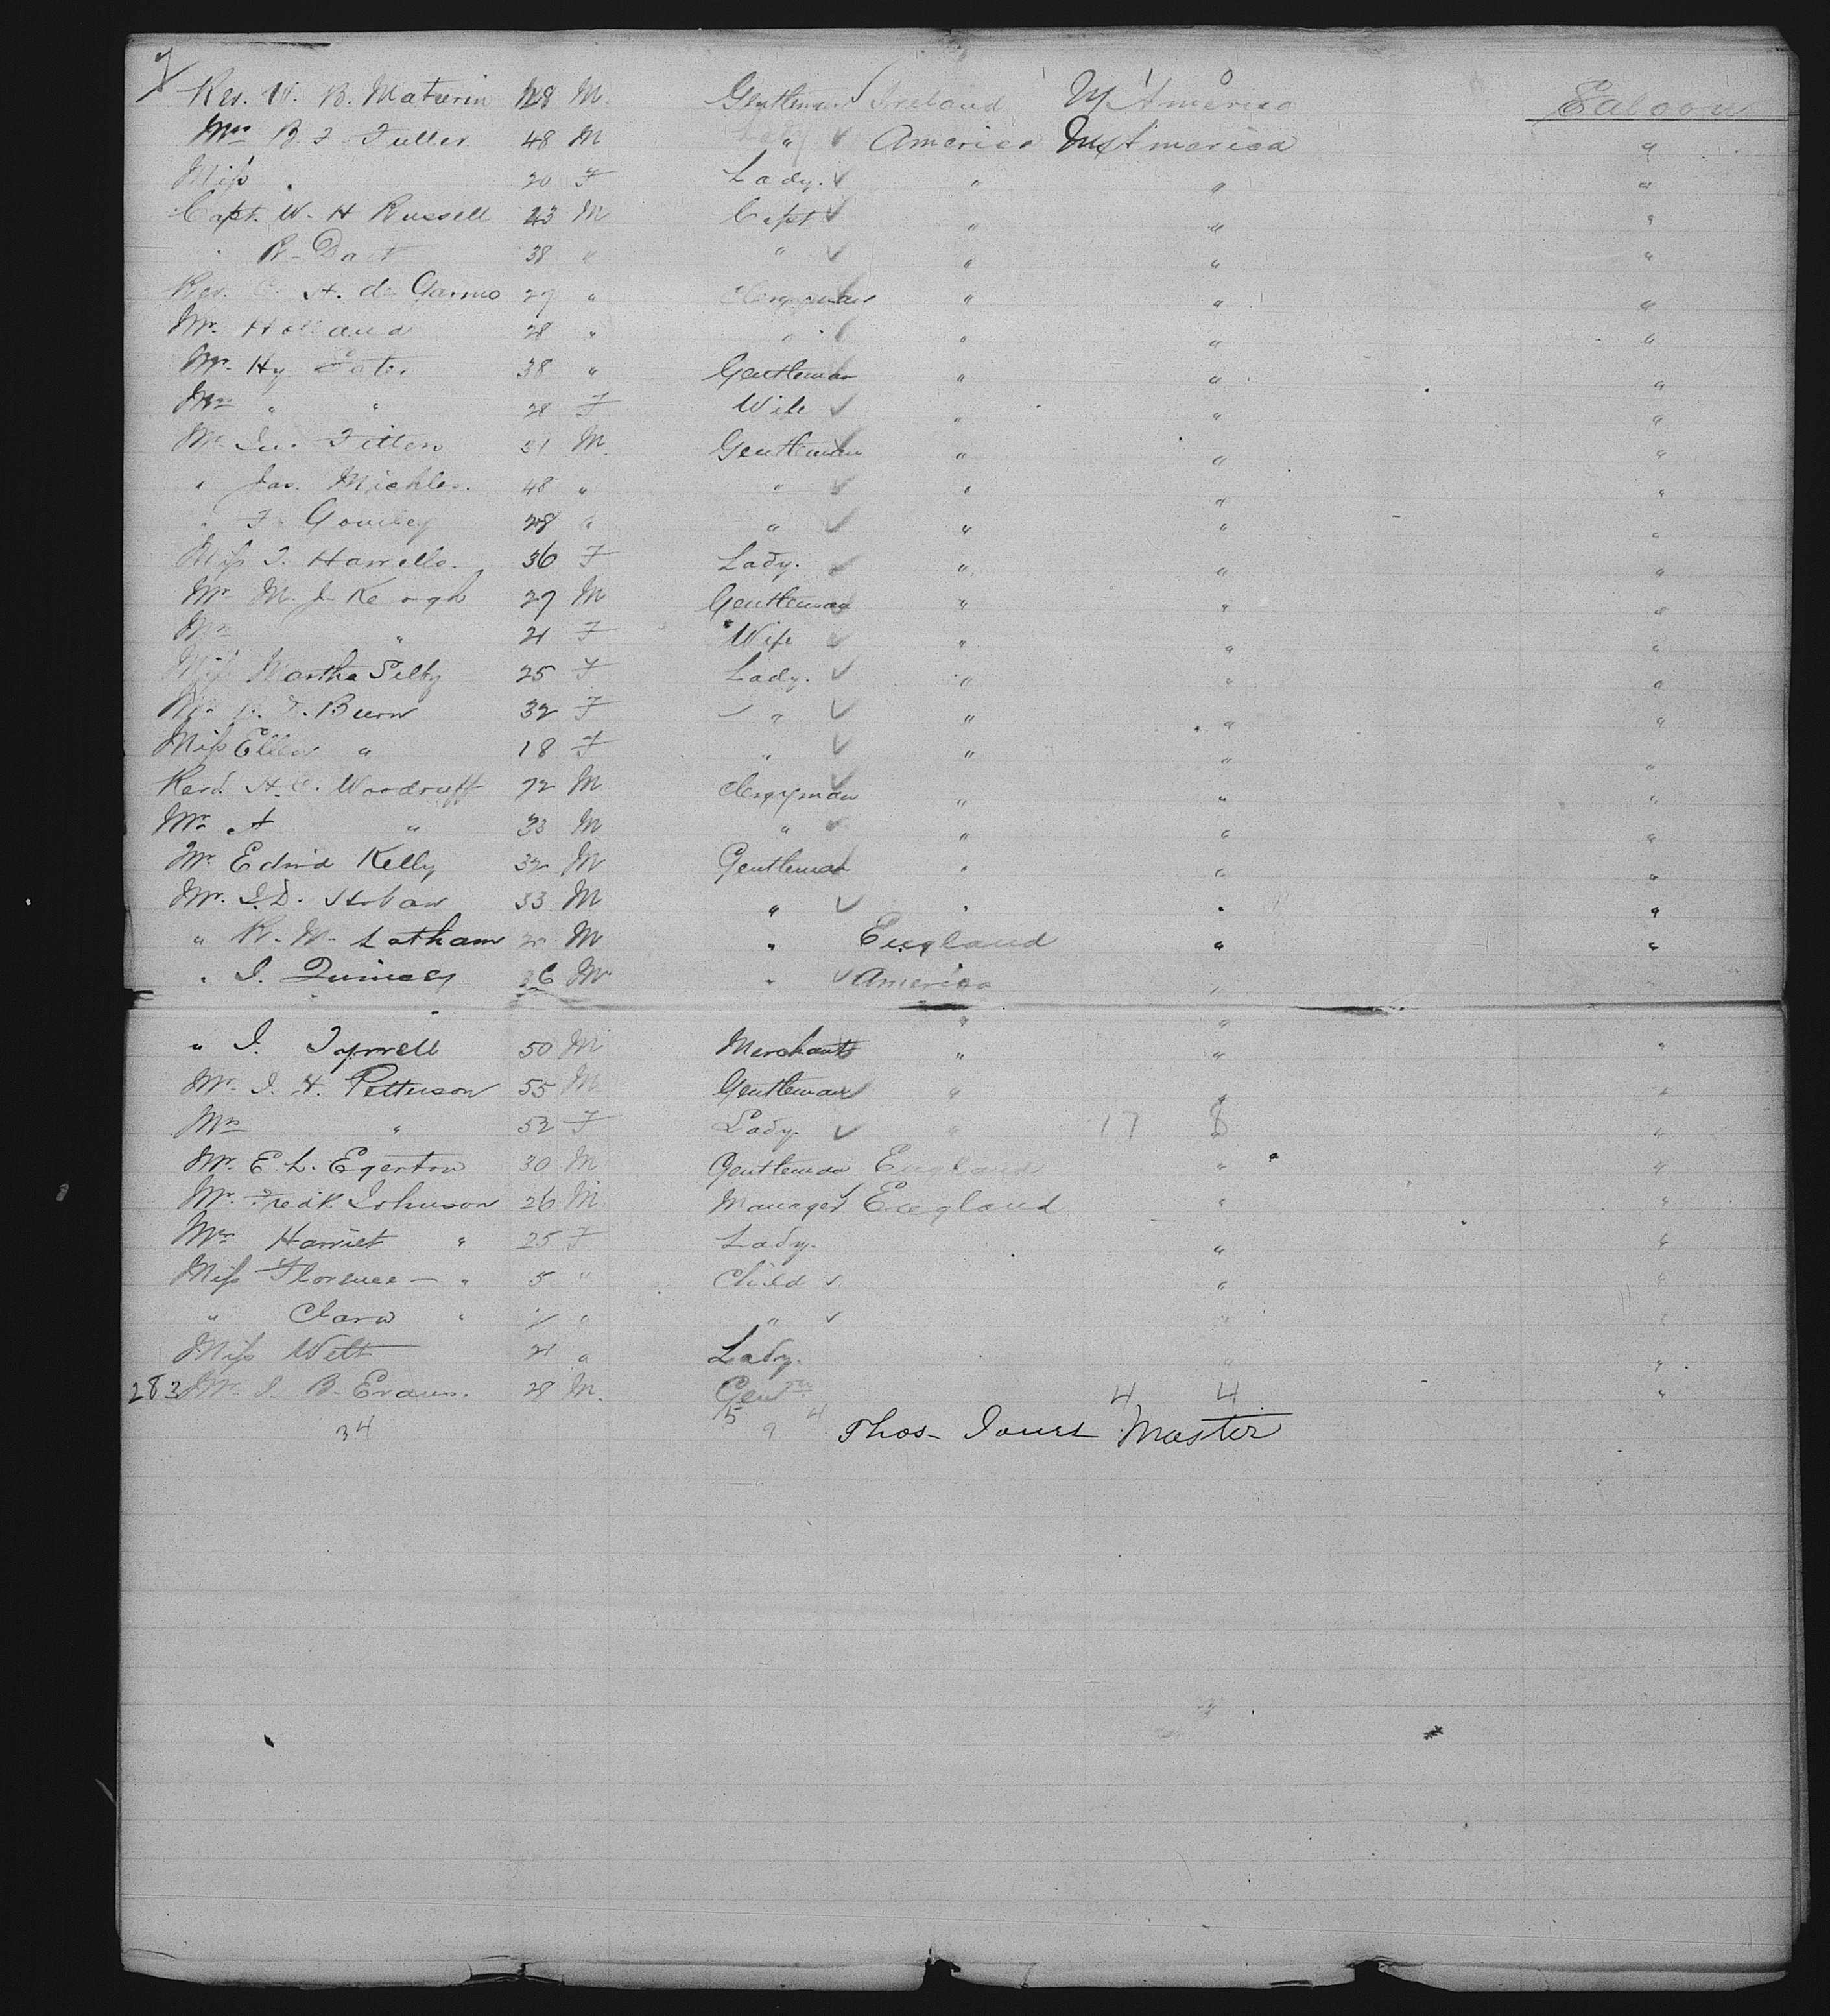 7
Rev. W. B. Maturin 28 M. Gentleman Ireland N America Saloon
Mrs B. F. Fuller 48 M Lady " America N America "
Miss " 20 F Lady. " " "
Capt. W. H Russell 43 M Capt " " "
" R. Dart 38 " " " " "
Rev. C. H. de Garmo 27 " Clergyman " " "
Mr. Holland 28 " " " " "
Mr. Hy 38 " Gentleman " " "
Mrs " " 28 F Wife " " "
Mr. Jno. Fitten 31 M. Gentleman " " "
" Jas. Michles. 48 " " " " "
" F. Gourley 28 " " " " "
Miss I. Harrells. 36 F Lady. " " "
Mr. M. J. Keough 27 M Gentleman " " "
Mrs " 21 F Wife " " "
Miss Martha Selby 25 F Lady. " " "
B. F. Burn 32 F " " " "
Miss Ellen " 18 F " " " "
Revd. H. C. Woodruff 72 M Clergyman " " "
Mr. A " 33 M " " " "
Mr. Edwd Kelly 32 M Gentleman " " "
Mr. J. D. Hoban 33 M " " " "
" R. W. Latham M " England " "
" J. Quincey 26 M " America " "
" "
" J. Tyrrell 50 M Merchant " " "
Mr. J. H. Patterson 55 M Gentleman " " "
Mrs " 52 F Lady. " 17 8 "
Mr. E. L. Egerton 30 M Gentleman England " "
Mr. Fredk Johnson 26 M Manager England " "
Mrs Harriet " 25 F Lady. " "
Miss Florence — " 5 " Child " "
" Clara " " " " "
Miss Welt 21 " Lady. " "
283 Mr. J. B. Evans. 28 M. Gentn 4 4 "
34 5 9 4 Thos. Jones Master